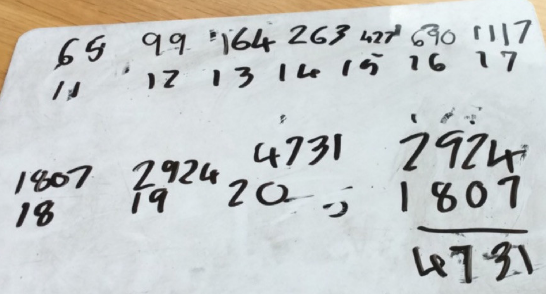 65 99 164 263 427 690 1117
11 12 13 14 15 16 17
1807 2924 4731 2924
18 19 20 1807
4731